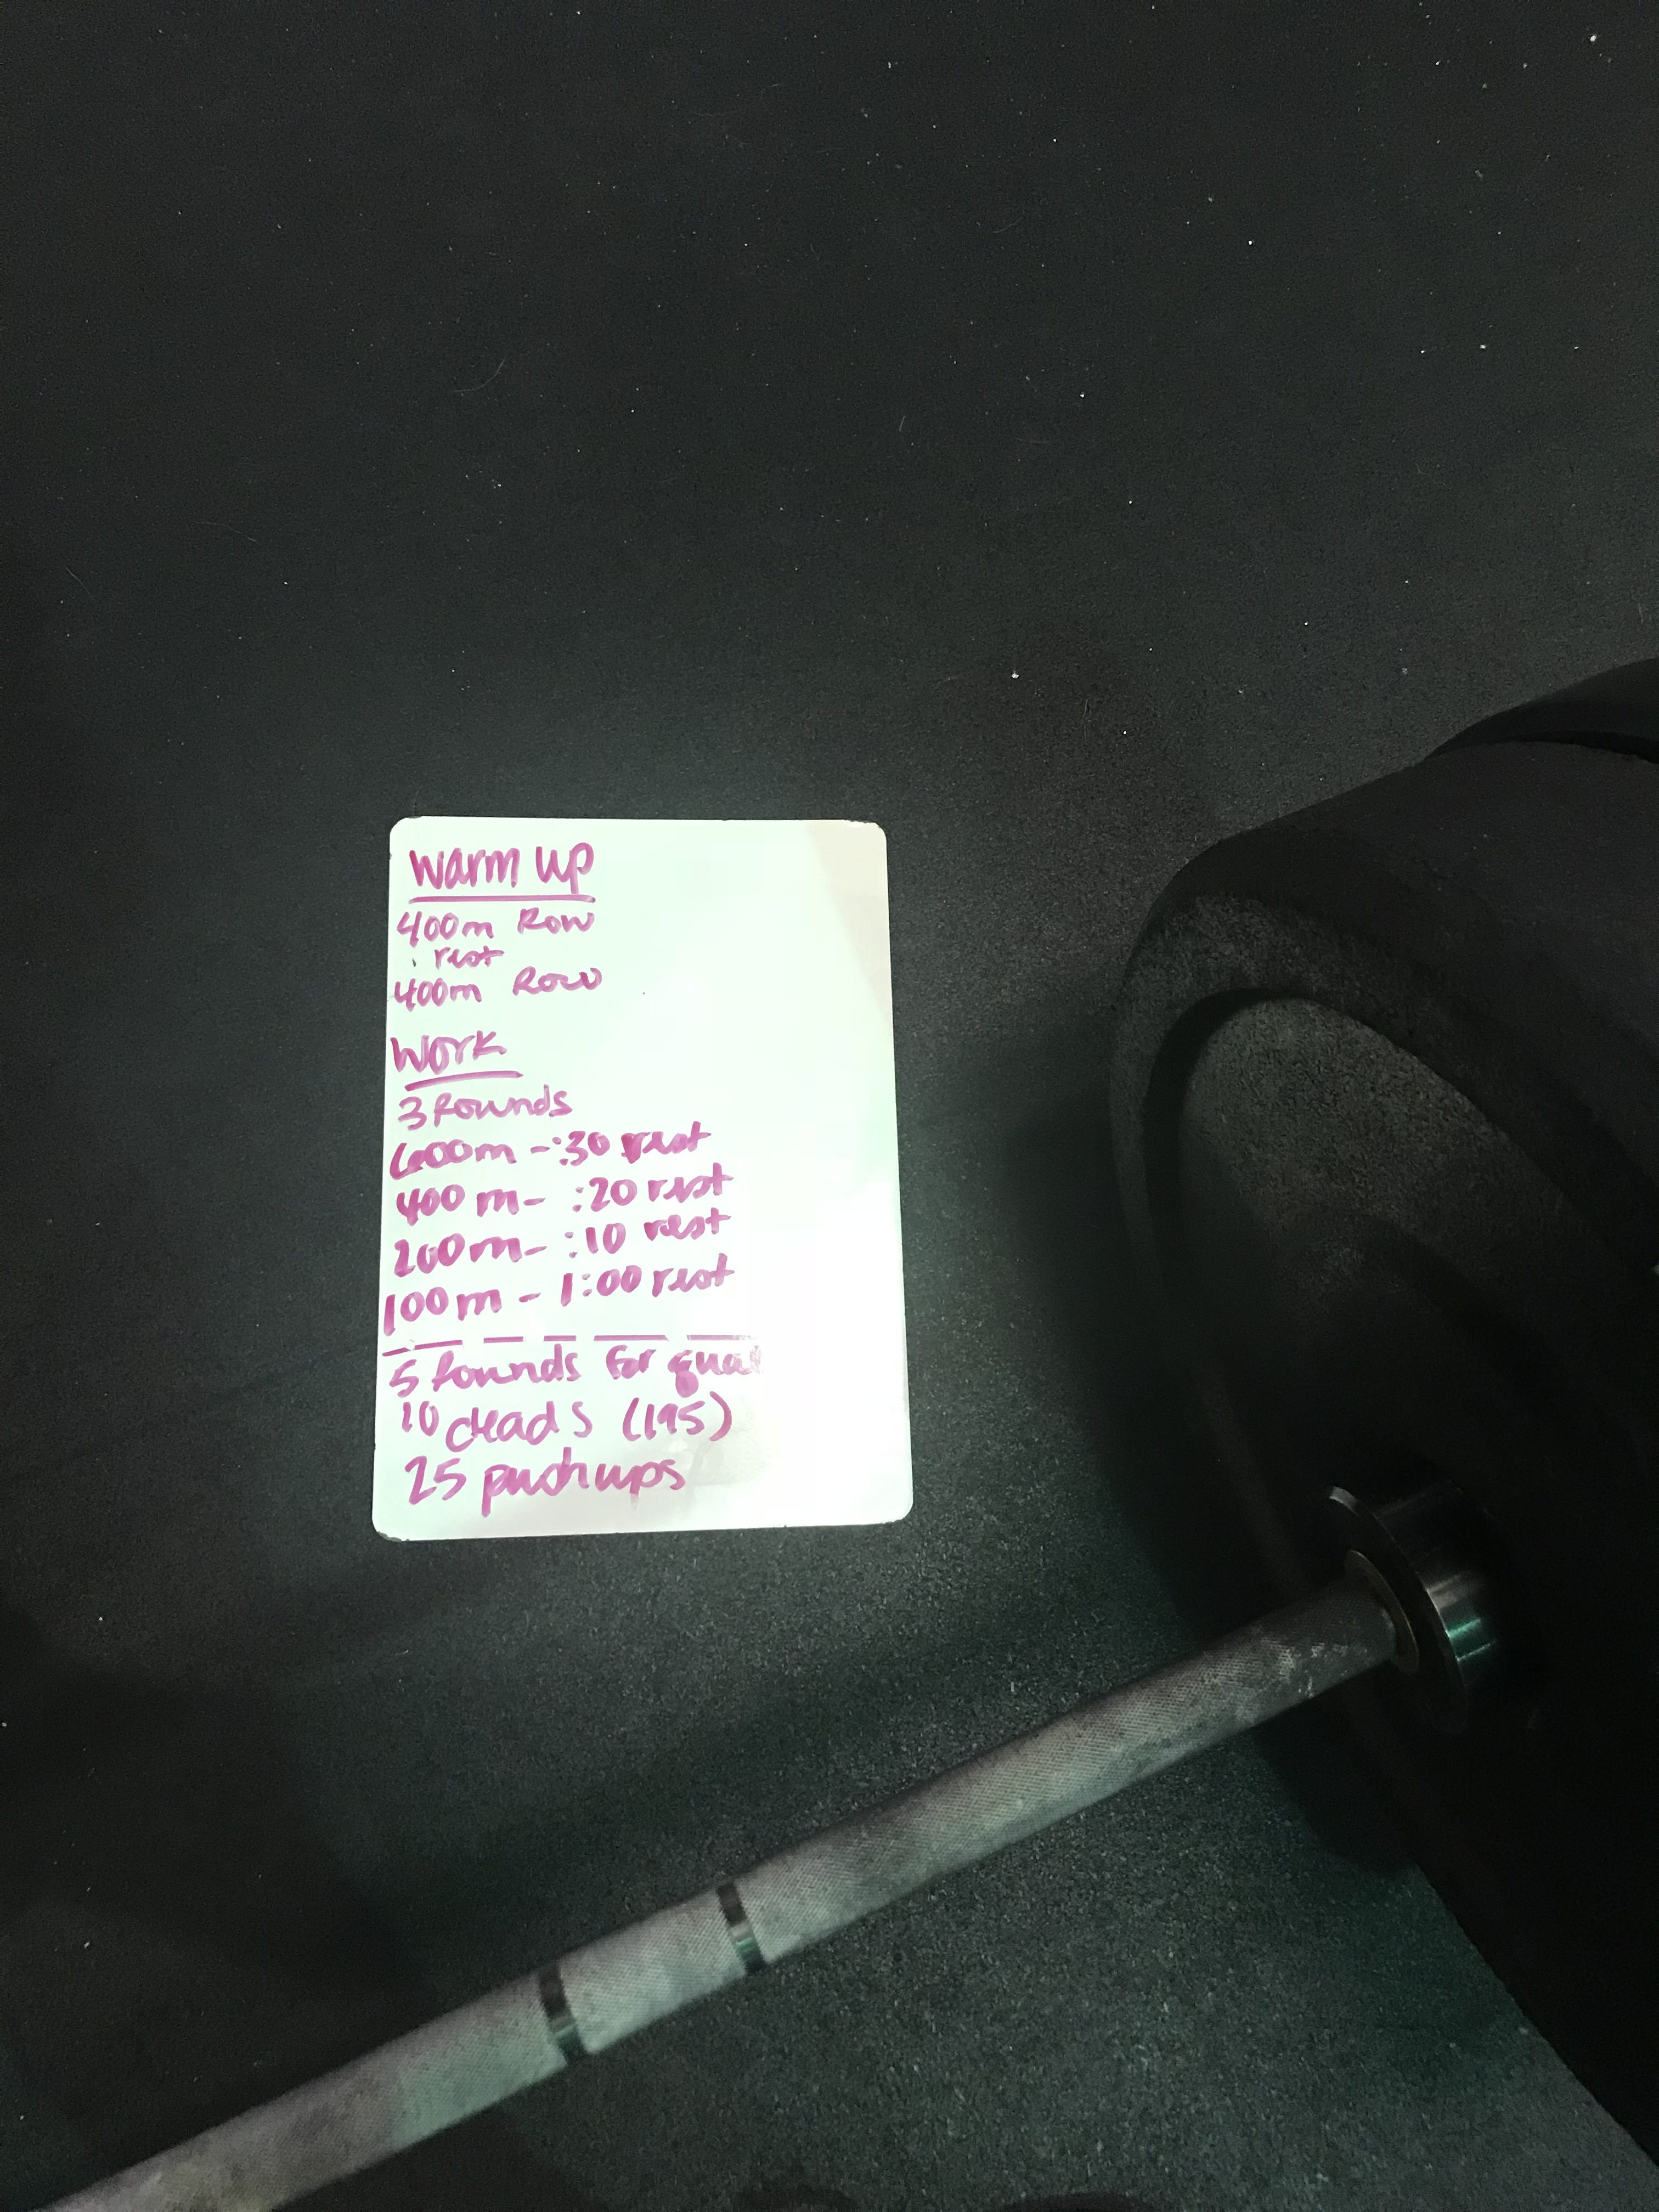 warm up
400m Row
: rest
400m Row
Work
3 Rounds
600m - :30 rest
400m - :20 rest
200m - :10 rest
100m - 1:00 rest
5 Rounds for qual
10 deads (195)
25 pushups